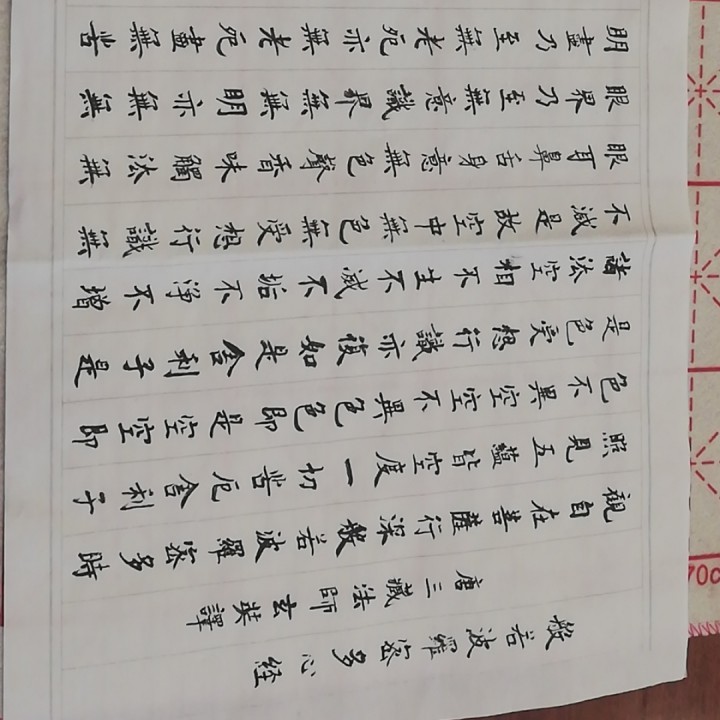 般若波羅蜜多心經
唐三藏法師玄奘譯
觀自在菩薩行深般若波羅蜜多時
照見五蘊皆空度一切苦厄舍利子
色不異空空不異色色即是空空即
是色受想行識亦復如是舍利子是
諸法空相不生不滅不垢不淨不增
不減是故空中無色無受想行識無
眼耳鼻舌身意無色聲香味觸法無
眼界乃至無意識界無無明亦無無
明盡乃至無老死亦無老死盡無苦